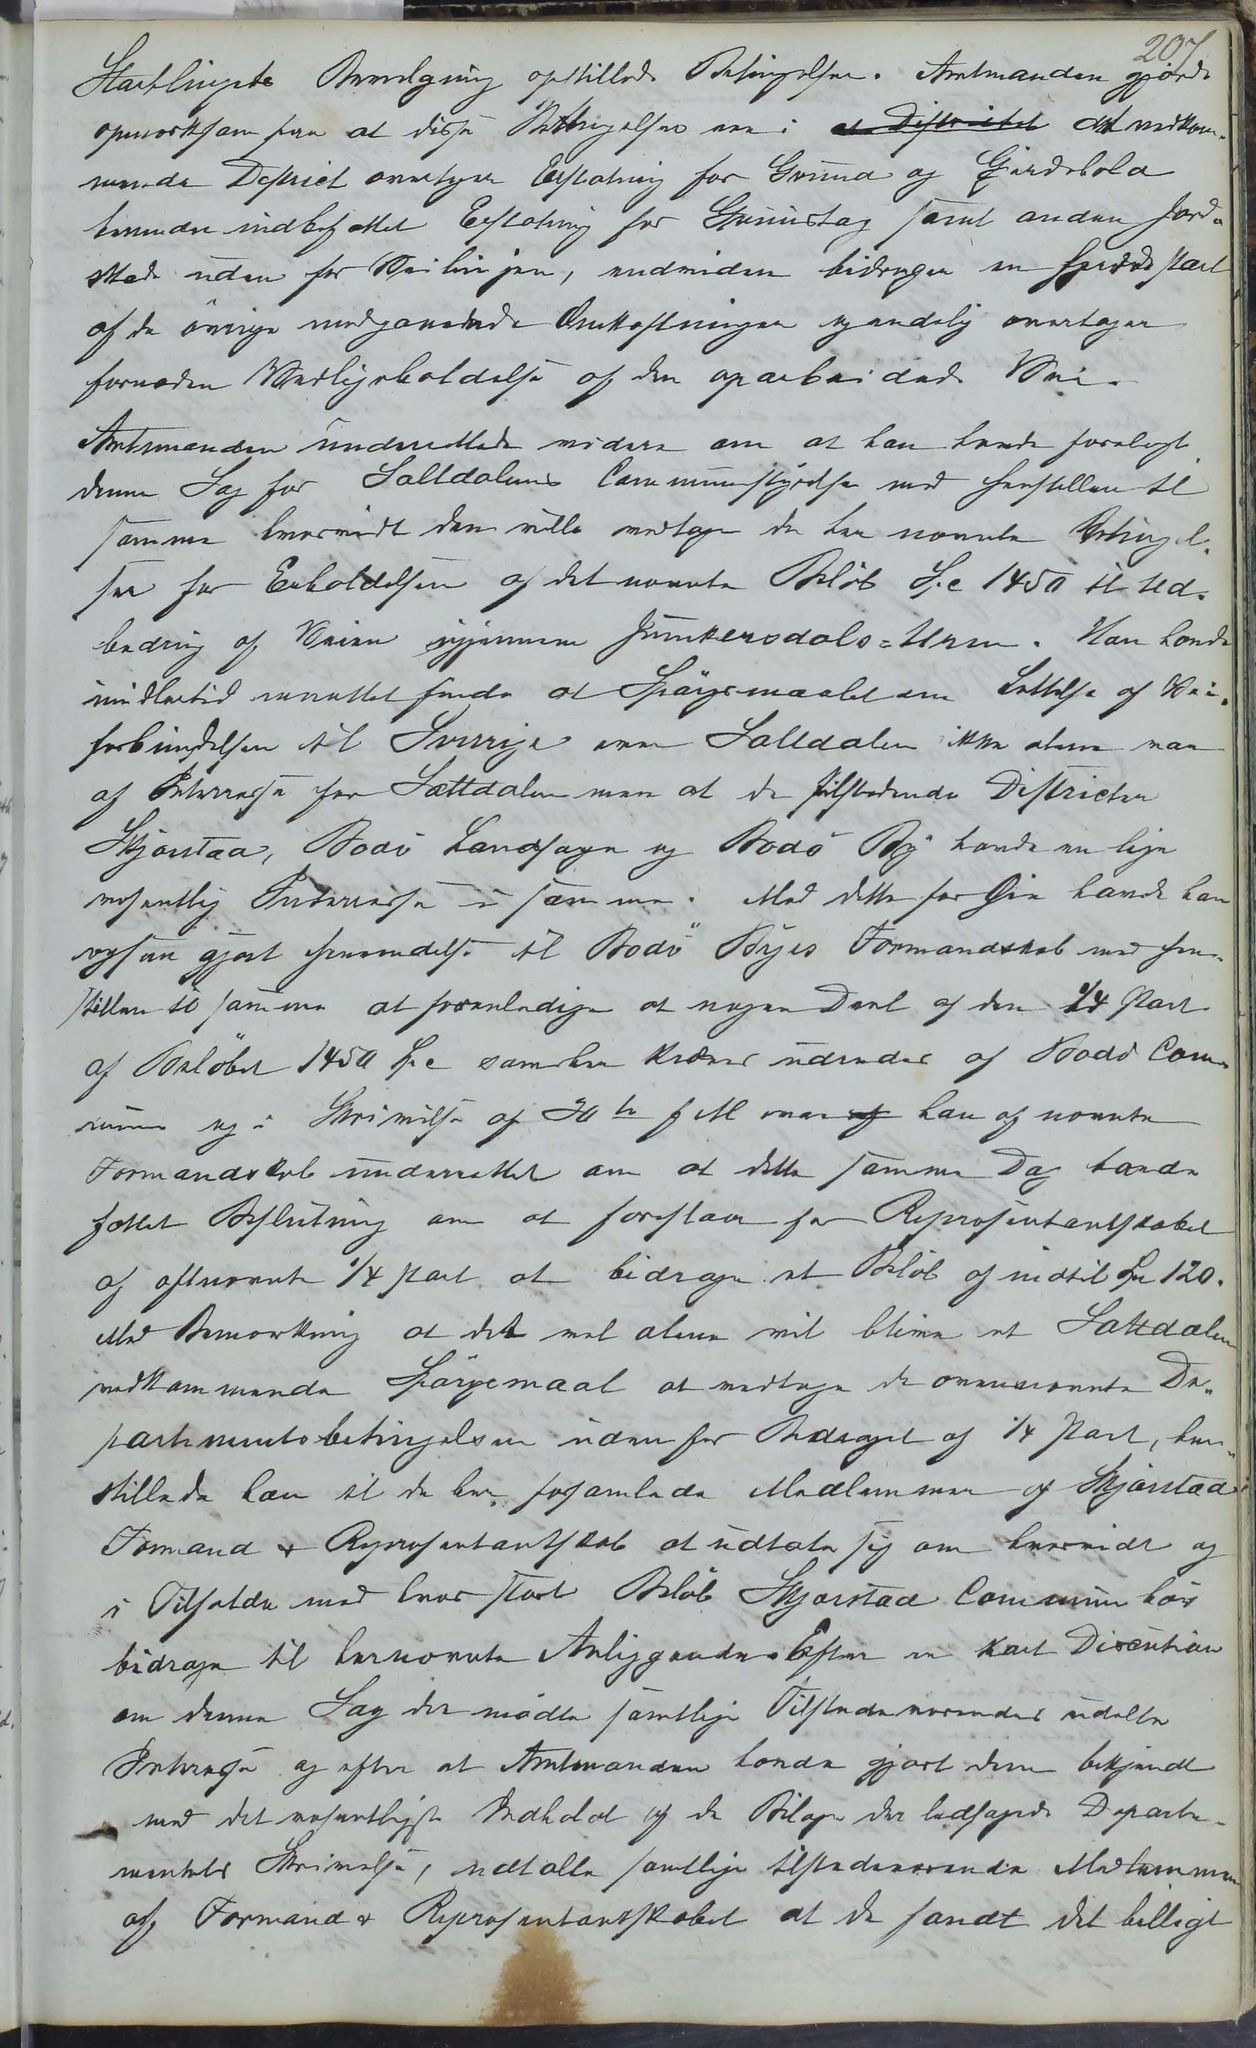 207
Storthingets Bevilgning opstillede Betingelser. Amtmanden gjorde
opmærksom paa at disse Betingelser er: at Districtet det vedkom-
mende District overtager Erstatning for Grund og Gjærdehold
herunder indbefattet Erstatning for Gruustag samt anden Jord-
skade uden for Veilinjen, endvidere bidrager en fjerdepart
af de övrige medgaaende Omkostninger og endelig overtager
fornøden Vedligeholdelse af den oparbeidede Vei.
Amtmanden underrettede videre om at han havde forelagt
denne Sag for Saltdalens Communestyrelse med Henstillen til
samme hvorvidt den ville vedtage de her nævnte Betingel-
ser for Erholdelsen af det nævnte Beløb Spc 1450 til Ud-
bedring af Veien igjennem Junkersdals=Uren. Han havde
imidlertid ment at Spörgsmaalet om Lettelse af Vei-
forbindelsen til Sverige over Saltdalen ikke alene var
af Interesse for Saltdalen men at de tilstødende Districter
Skjerstad, Bodö Landsogn og Bodö By havde en lige
væsentlig Interesse i samme. Med dette for Øie havde han
ogsaa gjort Henvendelse til Bodö Byes Formandskab med Hen-
stillen til samme at foranledige at nogen Deel af den 1/4 Part
af Beløbet 1450 Spc som her kræves udredes af Bodö Com-
mune og i Skrivelse af 30te f M var af han af nævnte
Formandskab underrettet om at dette samme Dag havde
fattet Beslutning om at foreslaa for Repræsentantskabet
af oftnævnte 1/4 Part at bidrage et Beløb af indtil Spc 120.
Med Bemærkning at det vel alene vil blive et Saltdalen
vedkommende Spörgsmaal at vedtage de ovennævnte De-
partementsbetingelser uden for Bidraget af 1/4 Part, hen-
stillede han til de her forsamlede Medlemmer af Skjerstad
Formand & Repræsentantskab at udtale sig om hvorvidt og
i Tilfælde med hvor stort Beløb Skjerstad Commune bör
bidrage til hernævnte Anliggende. Efter en kort Discution
om denne Sag der mödte samtlige Tilstedeværendes udelte
Interesse og efter at Amtmanden havde gjort dem bekjendt
med det væsentligste Indhold af de Bilage der ledsagede Departe-
mentets Skrivelse, udtalte samtlige tilstedeværende Medlemmer
af Formand & Repræsentantskabet at de fandt det billigt